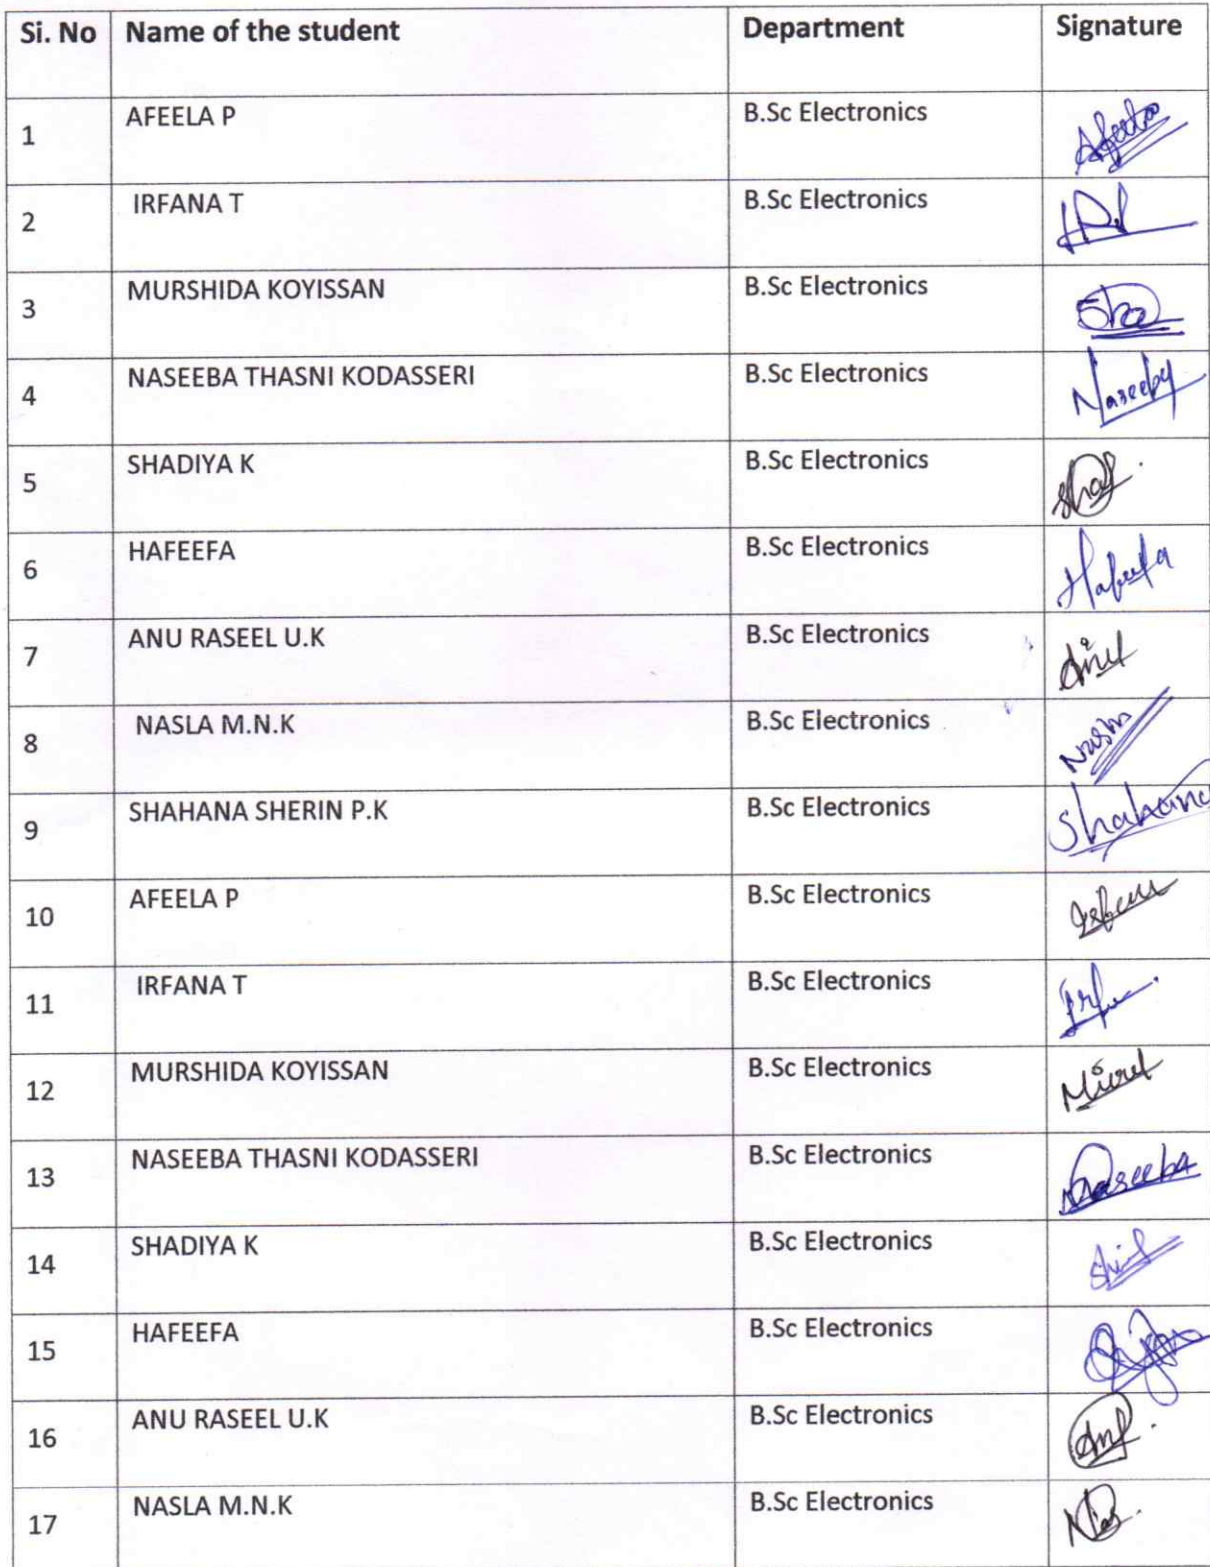 Si. No Name of the student Department Signature
1 AFEELA P B.Sc Electronics Afeela
2 IRFANA T B.Sc Electronics
3 MURSHIDA KOYISSAN B.Sc Electronics
4 NASEEBA THASNI KODASSERI B.Sc Electronics Naseeba
5 SHADIYA K B.Sc Electronics
6 HAFEEFA B.Sc Electronics Hafeefa
7 ANU RASEEL U.K B.Sc Electronics
8 NASLA M.N.K B.Sc Electronics
9 SHAHANA SHERIN P.K B.Sc Electronics Shahana
10 AFEELA P B.Sc Electronics
11 IRFANA T B.Sc Electronics
12 MURSHIDA KOYISSAN B.Sc Electronics
13 NASEEBA THASNI KODASSERI B.Sc Electronics Naseeba
14 SHADIYA K B.Sc Electronics
15 HAFEEFA B.Sc Electronics
16 ANU RASEEL U.K B.Sc Electronics
17 NASLA M.N.K B.Sc Electronics